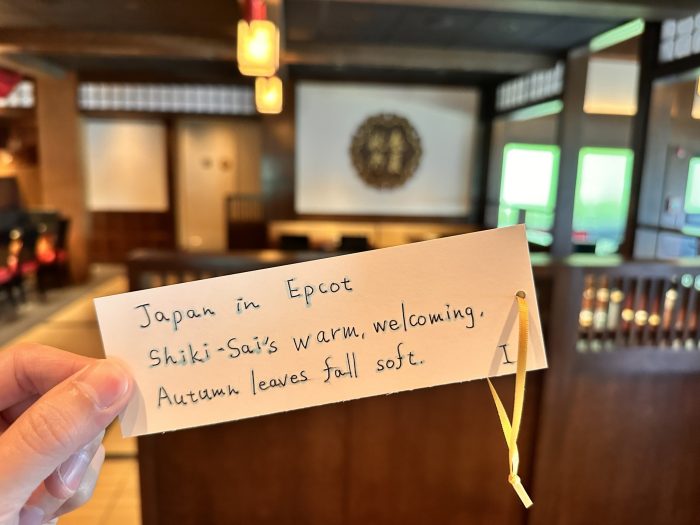 Japan in Epcot
Shiki-Sai's warm, welcoming.
Autumn leaves fall soft.
I